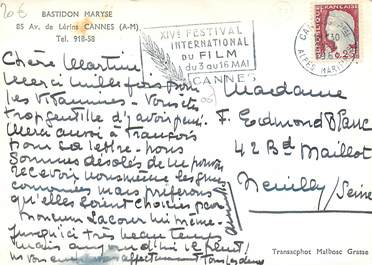 20€
BASTIDON MARYSE
85 Av. de Lérins CANNES (A-M)
Tel. 918-58
XIVe FESTIVAL
INTERNATIONAL
DU FILM
du 3 au 16 MAI
CANNES
0,25
ALPES MARITIMES
Chère Martine
Merci mille fois pour
les vitamines - Vous êtes
trop gentille d'y avoir pensé.
Merci aussi à François
pour sa lettre - nous
sommes désolés de ne pouvoir
recevoir nous même les
mais préférons
qu'elles soient choisies par
Monsieur Lacour lui même.
Jusqu'ici très beau temps
mais aujourd'hui il pleut!
affectueusement tous les deux
Madame
F. Edmond Blanc
42 Bd Maillot
Neuilly/Seine
Transacphot Malbosc Grasse